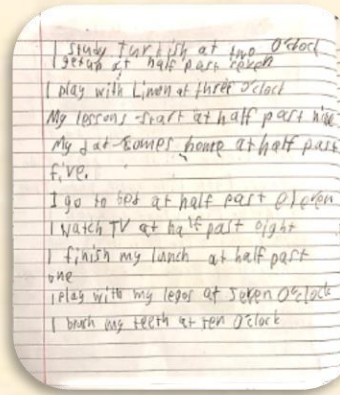 I study Turkish at two O'clock
I get up at half past seven
I play with Limon at three o'clock
My lessons start at half past nine
My dat comes home at half past
five.
I go to bed at half past eleven
I watch TV at half past eight
I finish my lunch at half past
one
I play with my legos at seven O'clock
I brush my teeth at ten O'clock